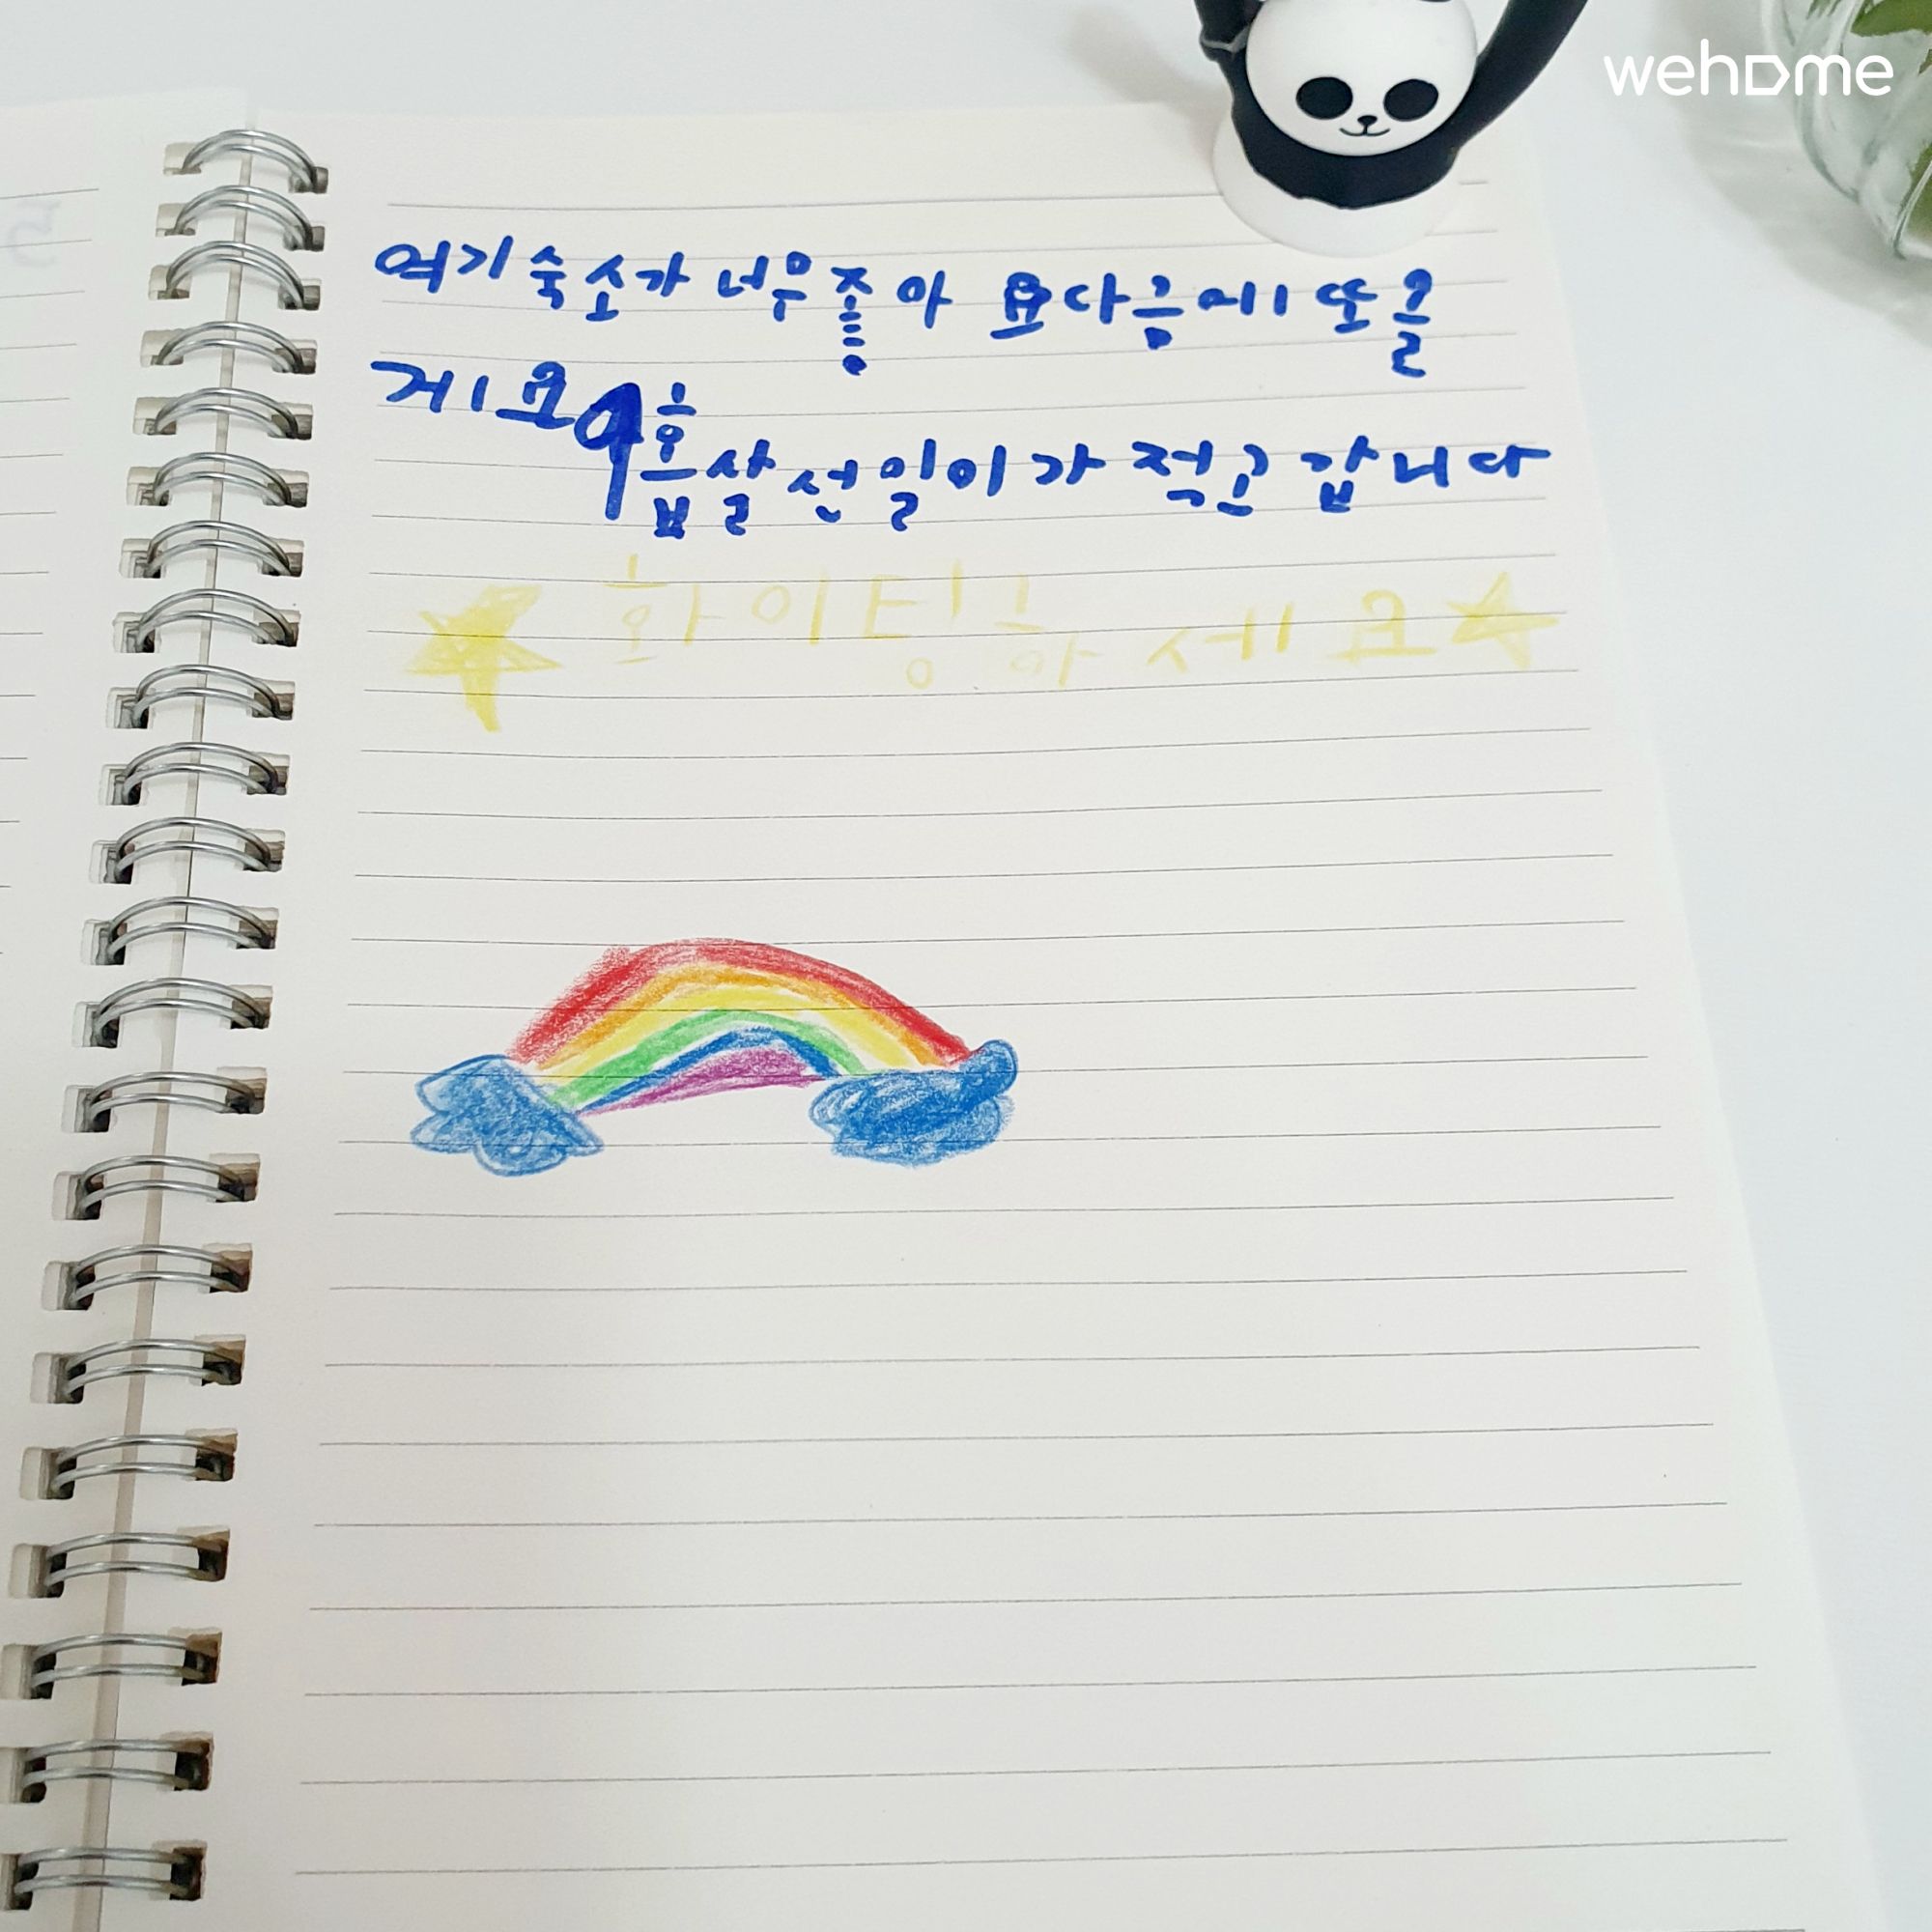 wehome
여기 숙소가 너무 좋아 요다음에 또올
게요 9홉살 선일이가 적고 갑니다
화이팅하세요